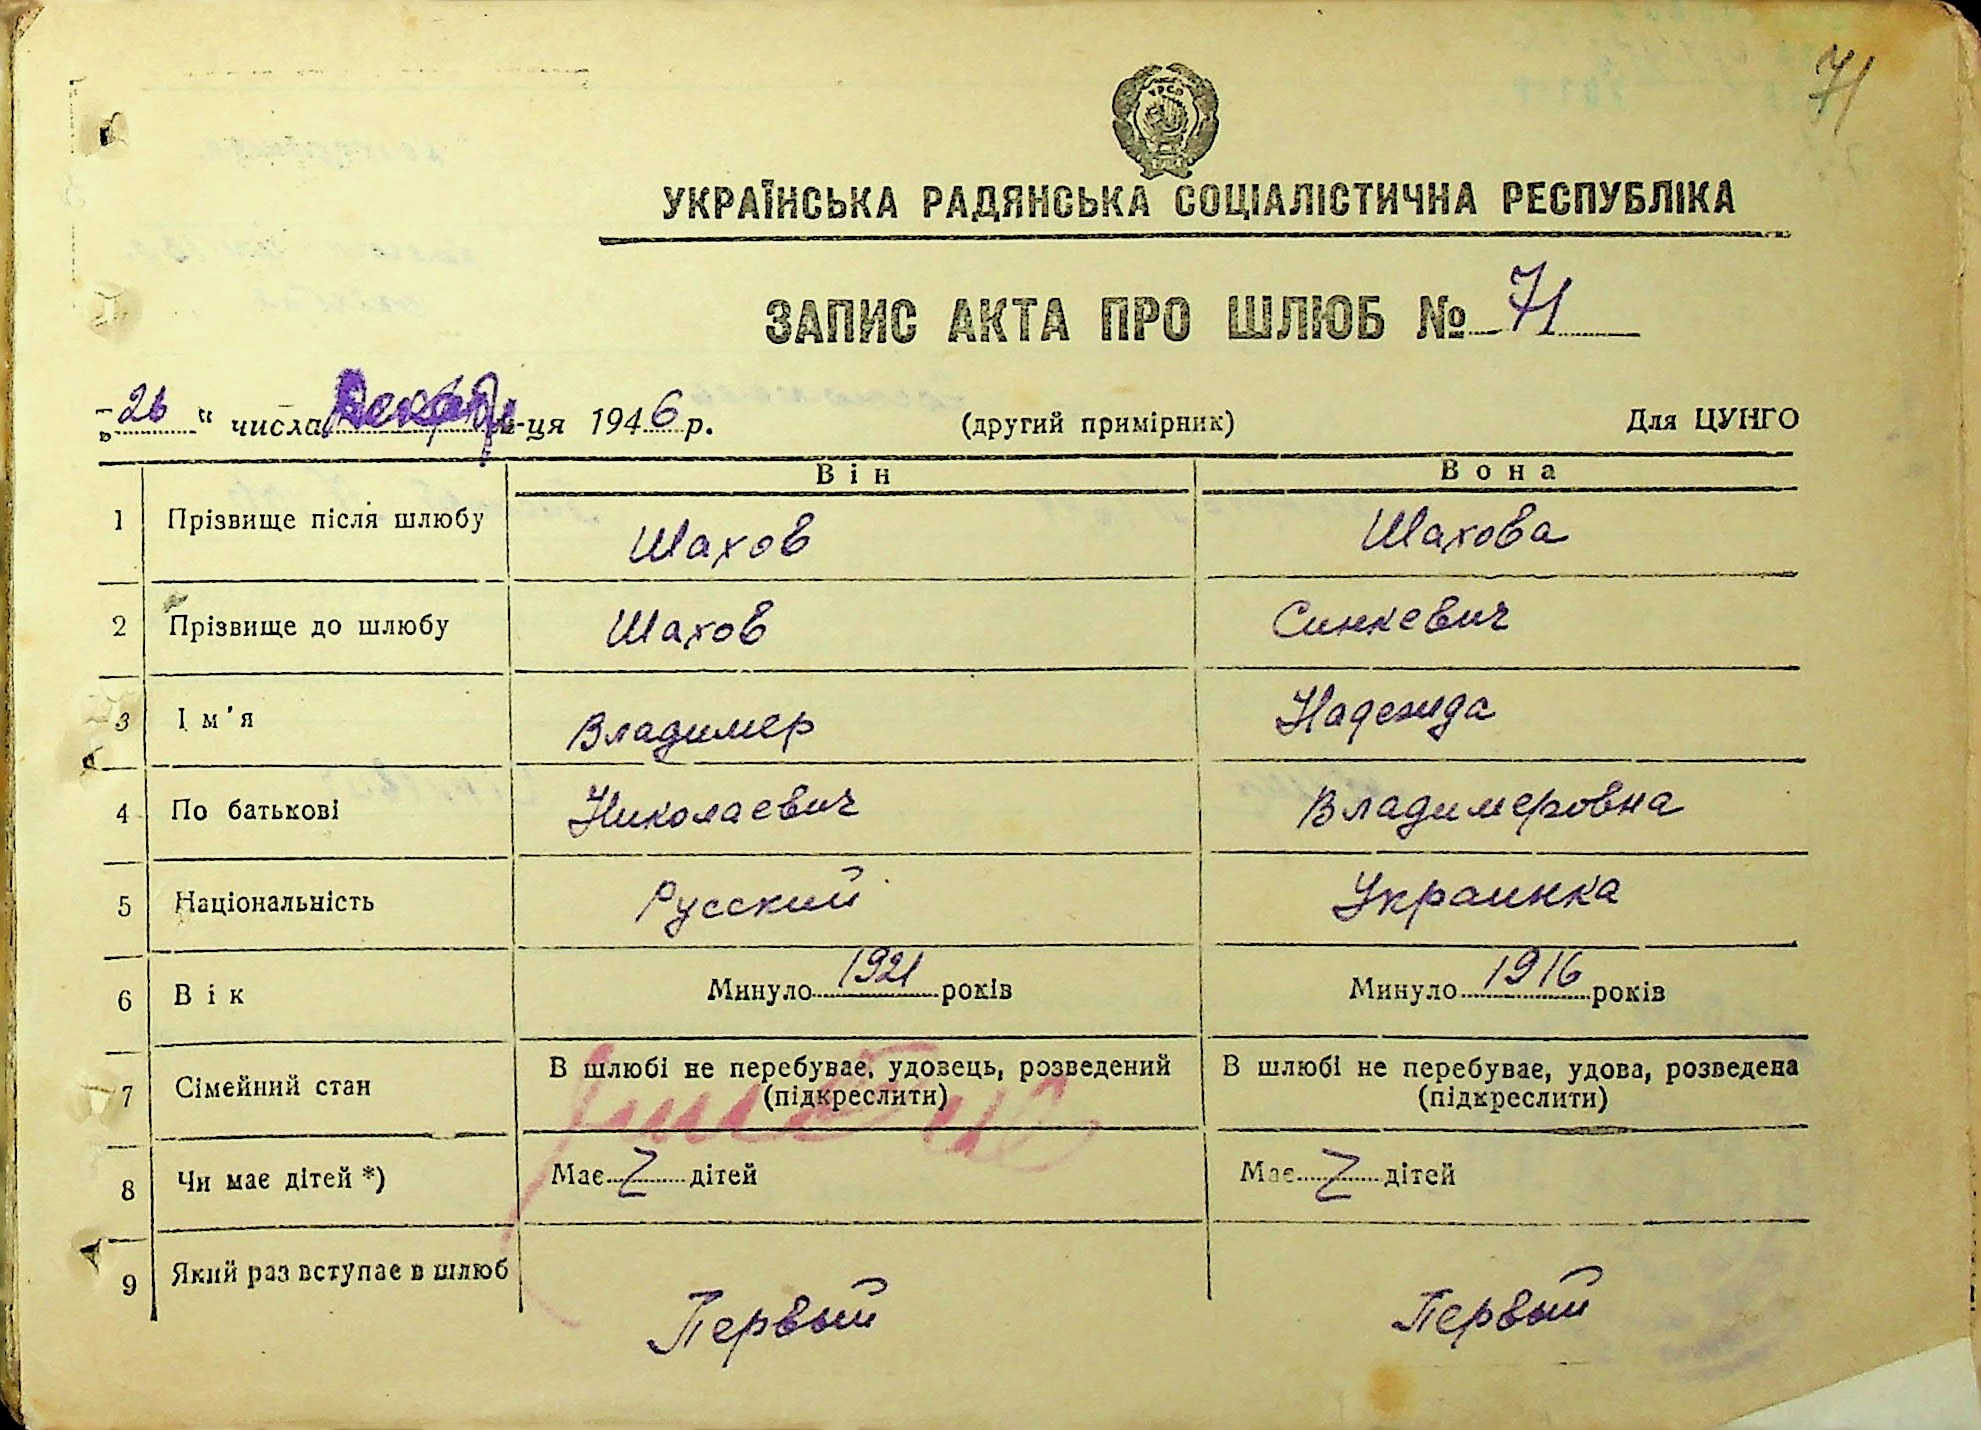 71
УРСР
УКРАЇНСЬКА РАДЯНСЬКА СОЦІАЛІСТИЧНА РЕСПУБЛІКА
ЗАПИС АКТА ПРО ШЛЮБ № 71
„ 26 “ числа Декабр -ця 1946 р. (другий примірник) Для ЦУНГО
Він Вона
1 Прізвище після шлюбу Шахов Шахова
2 Прізвище до шлюбу Шахов Синкевич
3 Ім'я Владимер Надежда
4 По батькові Николаевич Владимеровна
5 Національність Русский Украинка
6 Вік Минуло 1921 років Минуло 1916 років
7 Сімейний стан В шлюбі не перебуває, удовець, розведений (підкреслити) В шлюбі не перебуває, удова, розведена (підкреслити)
8 Чи має дітей *) Має Z дітей Має Z дітей
9 Який раз вступає в шлюб Первый Первый